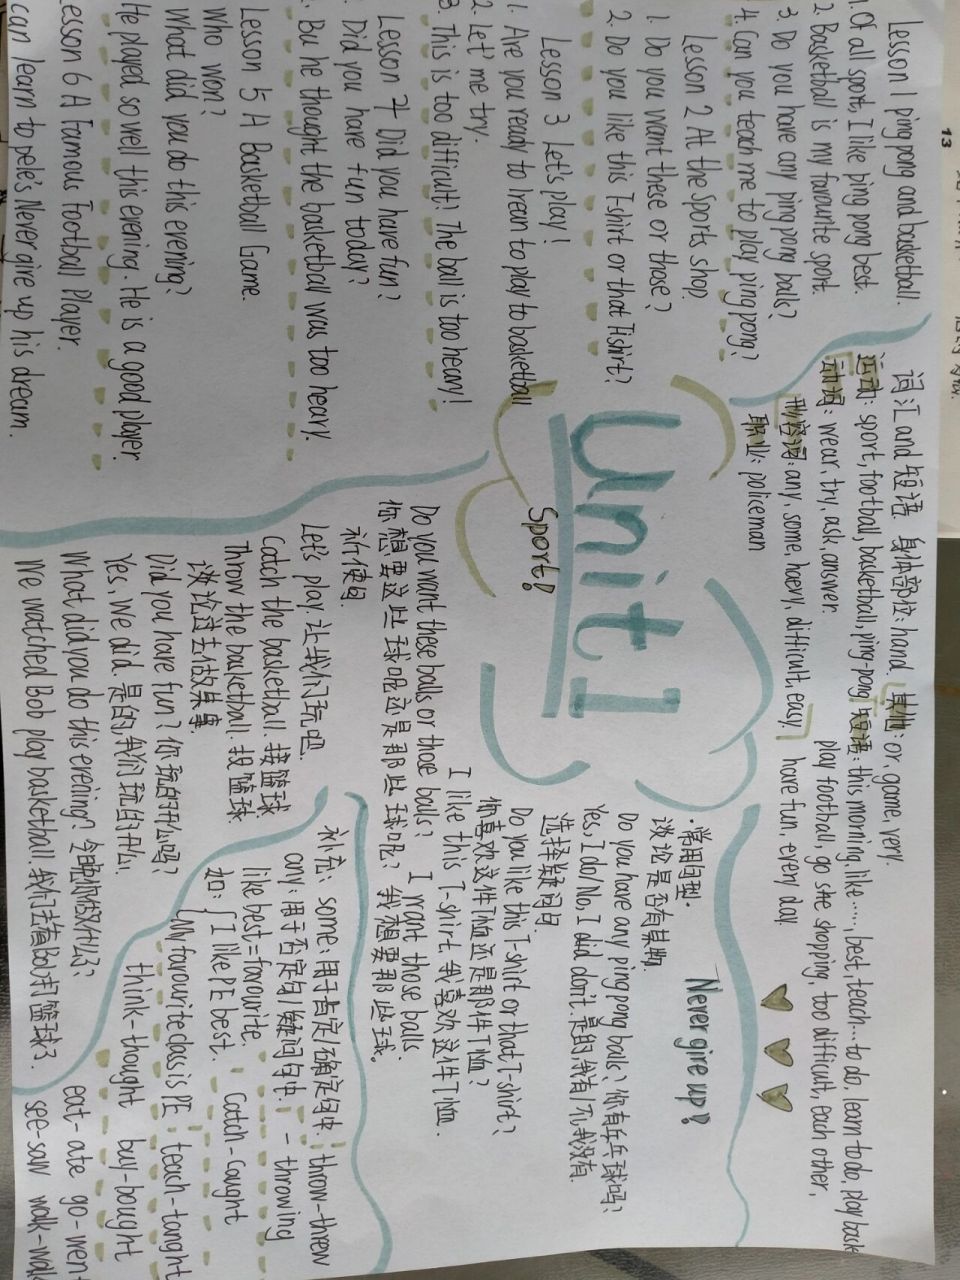 13
Lesson 1 ping pong and basketball.
1. Of all sport, I like ping pong best.
2. Basketball is my favourite sport.
3. Do you have any ping pong balls?
4. Can you teach me to play ping pong?
Lesson 2 At the sports shop
1. Do you want these or those?
2. Do you like this T-shirt or that Tishirt?
Lesson 3 Let's play!
1. Are you ready to rean to play to basketball
2. Let' me try.
3. This is too difficult! The ball is too heary!
Lesson 4 Did you have fun?
Did you have fun today?
Bu he thought the basketball was too heary.
Lesson 5 A Basketball Game.
Who won?
What did you do this evening?
He played so well this evening. He is a good player.
esson 6 A Famous Football Player.
can learn to pele's Never give up his dream.
Unit 1
Sport!
词汇and短语 身体部位: hand. 其他: or, game, very.
运动: sport, football, basketball, ping-pong 短语: this morning, like ..., best teach...to do, learn to do, play bask
动词: wear, try, ask, answer. play football, go she shopping, too difficult, each other,
形容词: any, some, haery, difficult, easy, have fun, every day.
职业: policeman
Never give up!
·常用句型·
谈论是否有某物
Do you have any ping pong balls? 你有乒乓球吗?
Yes, I do/No, I did don't. 是的我有/不,我没有.
选择疑问句
Do you like this T-shirt or that T-shirt?
你喜欢这件T恤还是那件T恤?
I like this T-shirt. 我喜欢这件T恤.
Do you want these balls or those balls? I want those balls.
你想要这些球呢还是那些球呢? 我想要那些球.
祈使句.
Let's play 让我们玩吧.
Catch the basketball. 接篮球
throw the basketball. 投篮球
谈论过去的故事.
Did you have fun? 你玩的开心吗?
Yes, we did. 是的,我们玩的开心.
What did you do this evening? 今晚你做什么了?
We watched Bob play basketball. 我们去看Bob打篮球了.
补充: some: 用于肯定/确定句中
any: 用于否定句/疑问句中
like best = farourite.
如: { I like PE best.
My favourite class is PE
throw-threw
- throwing
Catch-caught
teach-tanght
think-thought buy-bought
eat-ate go-wen
see-saw walk-walk